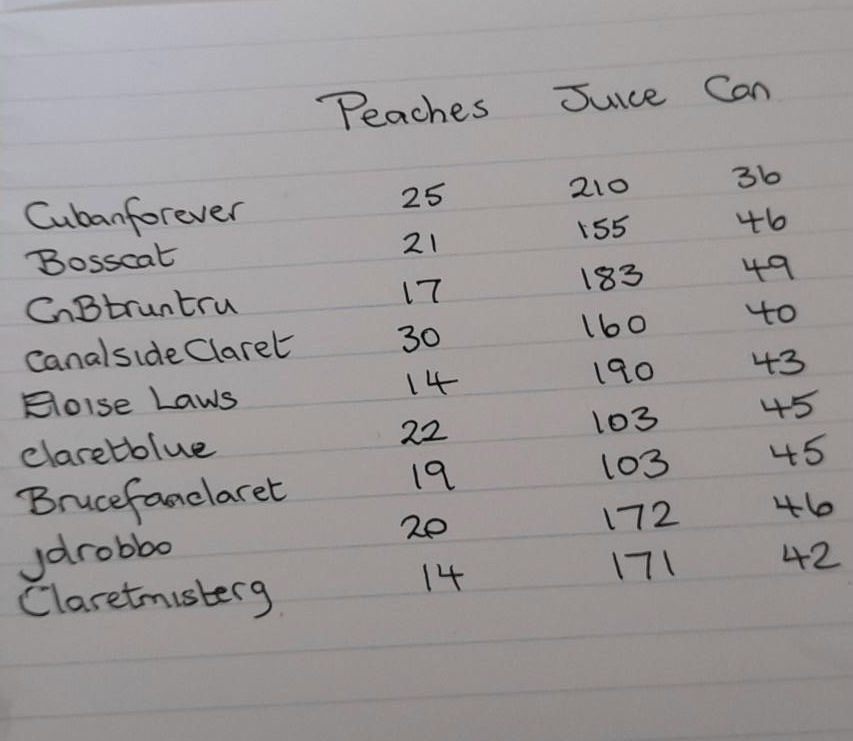 Peaches Juice Can
Cubanforever 25 210 36
Bosscat 21 155 46
CnBtruntru 17 183 49
canalsideClaret 30 160 40
Eloise Laws 14 190 43
claretblue 22 103 45
Brucefanclaret 19 103 45
jdrobbo 20 172 46
Claretmisterg 14 171 42